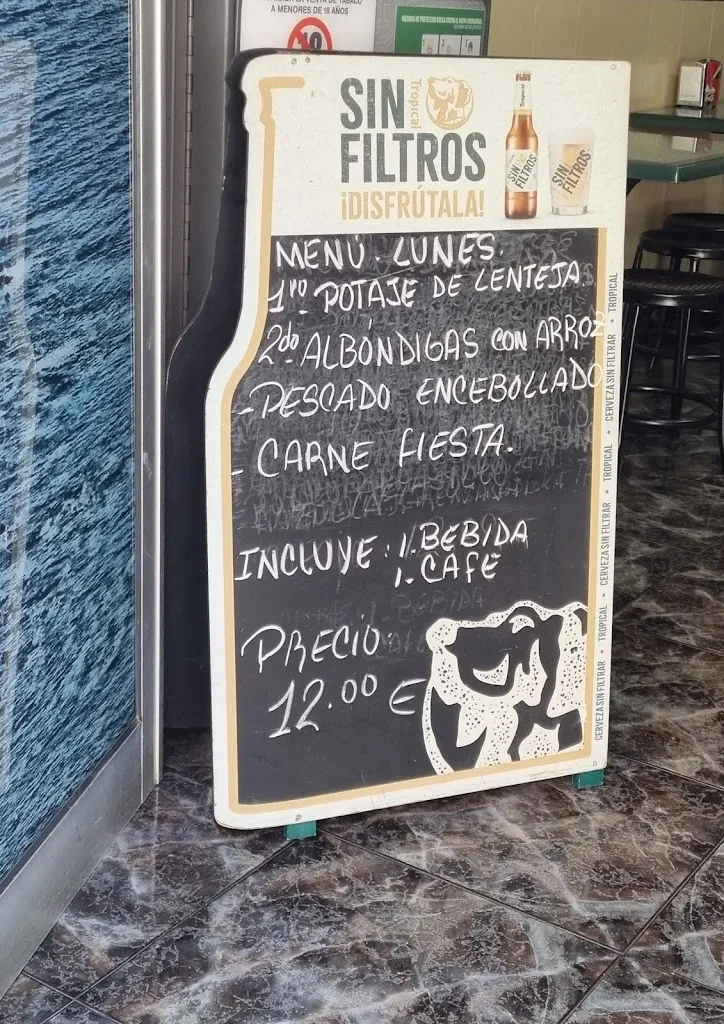 A MENORES DE 18 AÑOS
SIN
Tropical
FILTROS
¡DISFRÚTALA!
Tropical
SIN
FILTROS
SIN
FILTROS
MENÚ. LUNES.
1ro- POTAJE DE LENTEJA.
2do- ALBÓNDIGAS CON ARROZ
- PESCADO ENCEBOLLADO
- CARNE FIESTA.
INCLUYE: 1. BEBIDA
1. CAFÉ
PRECIO
12.00 €
CERVEZA SIN FILTRAR • TROPICAL • CERVEZA SIN FILTRAR • TROPICAL • CERVEZA SIN FILTRAR • TROPICAL